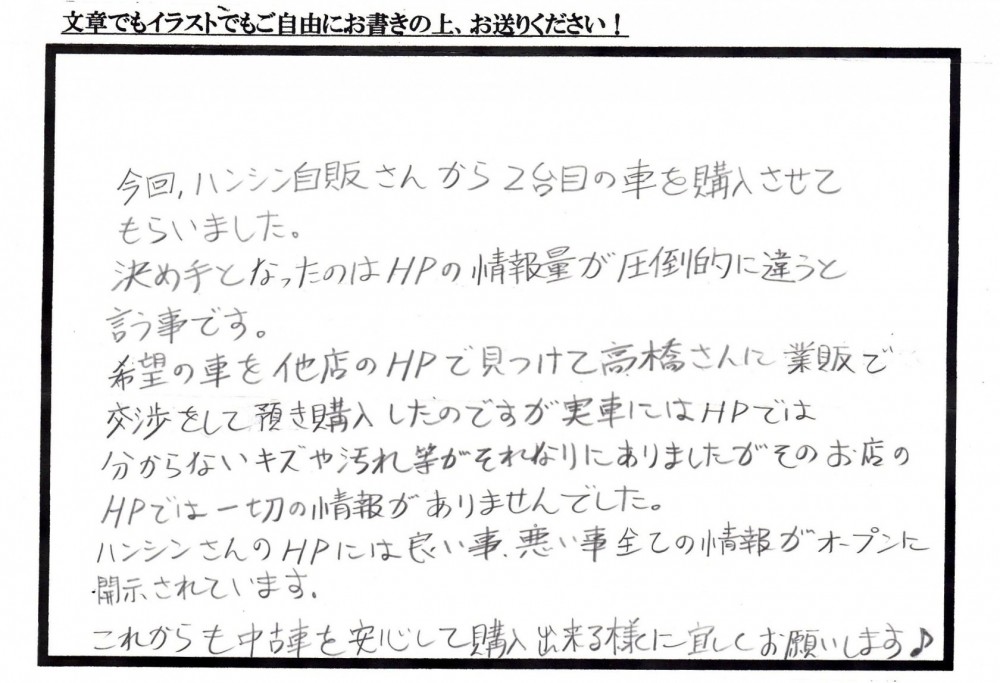 文章でもイラストでもご自由にお書きの上、お送りください！
今回,ハンシン自販さんから2台目の車を購入させて
もらいました。
決め手となったのはHPの情報量が圧倒的に違うと
言う事です。
希望の車を他店のHPで見つけて高橋さんに業販で
交渉をして頂き購入したのですが実車にはHPでは
分からないキズや汚れ等がそれなりにありましたがそのお店の
HPでは一切の情報がありませんでした。
ハンシンさんのHPには良い事、悪い事全ての情報がオープンに
開示されています.
これからも中古車を安心して購入出来る様に宜しくお願いします♪